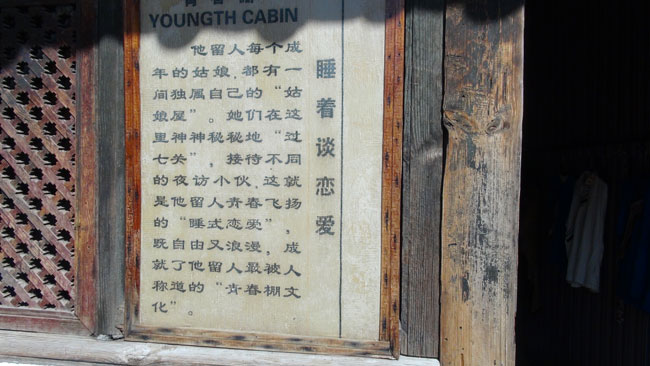 YOUNGTH CABIN
睡着谈恋爱
他留人每个成
年的姑娘,都有一
间独属自己的“姑
娘屋”。她们在这
里神神秘秘地“过
七关”,接待不同
的夜访小伙,这就
是他留人青春飞扬
的“睡式恋爱”,
既自由又浪漫,成
就了他留人最被人
称道的“青春棚文
化”。